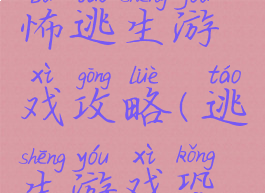 怖逃生游
xì gōng lüè táo
戏攻略(逃
shēng yóu xì kǒng
生游戏恐